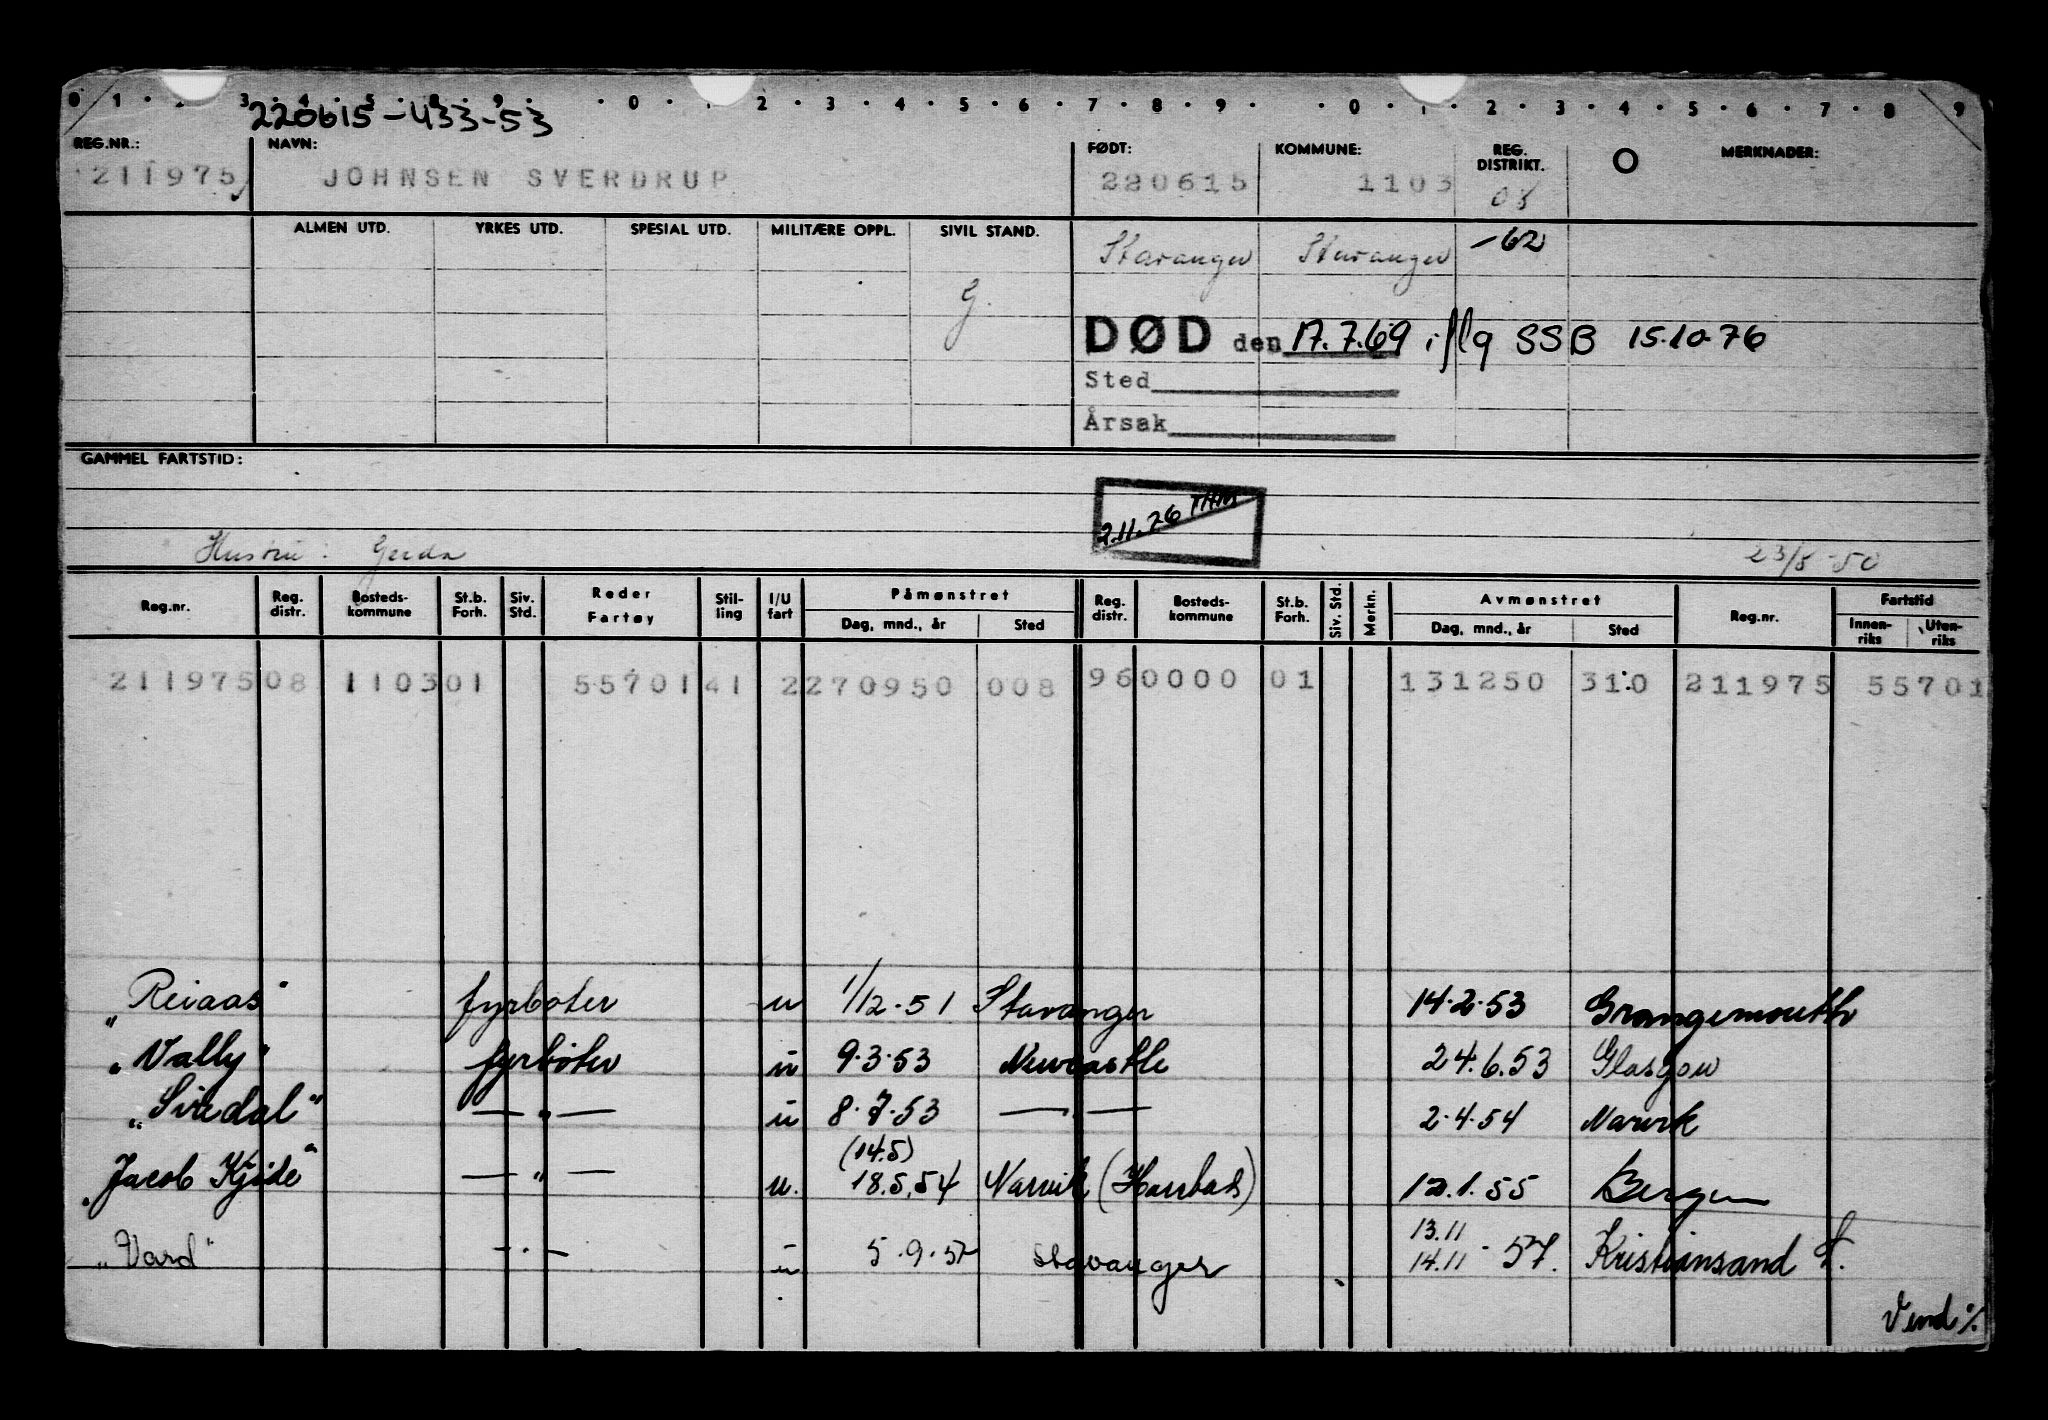 0 1 . . 3 . 4 . 5 . 8 . 9 . . 0 . . 2 . 3 . 4 . 5 . 6 . 7 . 8 . 9 . . 0 . 1 . 2 . 3 . 4 . 5 . 6 . 7 . 8 . 9
220615-433-53
REG.NR.: NAVN: FØDT: KOMMUNE: REG. DISTRIKT. O MERKNADER:
211975 JOHNSEN SVERDRUP 220615 1103 08
ALMEN UTD. YRKES UTD. SPESIAL UTD. MILITÆRE OPPL. SIVIL STAND. Stavanger Stavanger -62
G.
DØD den 17.7.69 iflg SSB 15.10.76
Sted
Årsak
GAMMEL FARTSTID:
2.11.76 THM
Hustru: Gerda 23/8-50
Reg.nr. Reg. distr. Bosteds-kommune St.b. Forh. Siv. Std. Reder Fartøy Stil-ling I/U fart Påmønstret Dag, mnd., år Sted Reg. distr. Bosteds-kommune St.b. Forh. Siv. Std. Merkn. Avmønstret Dag, mnd., år Sted Reg.nr. Fartstid Innen-riks Uten-riks
211975 08 1103 01 55701 41 2 270950 008 96 0000 01 131250 310 211975 55701
"Reiaas" fyrbøter u 1/12.51 Stavanger 14.2.53 Grangemouth
"Vally" fyrbøter u 9.3.53 Newcastle 24.6.53 Glasgow
"Siredal" — " — u 8.7.53 — " — 2.4.54 Narvik
(14.5)
"Jacob Kjøde" — " — u. 18.5.54 Narvik (Harstad) 12.1.55 Bergen
"Vard" — " — u 5.9.57 Stavanger 13.11 14.11 - 57. Kristiansand S.
Vend %